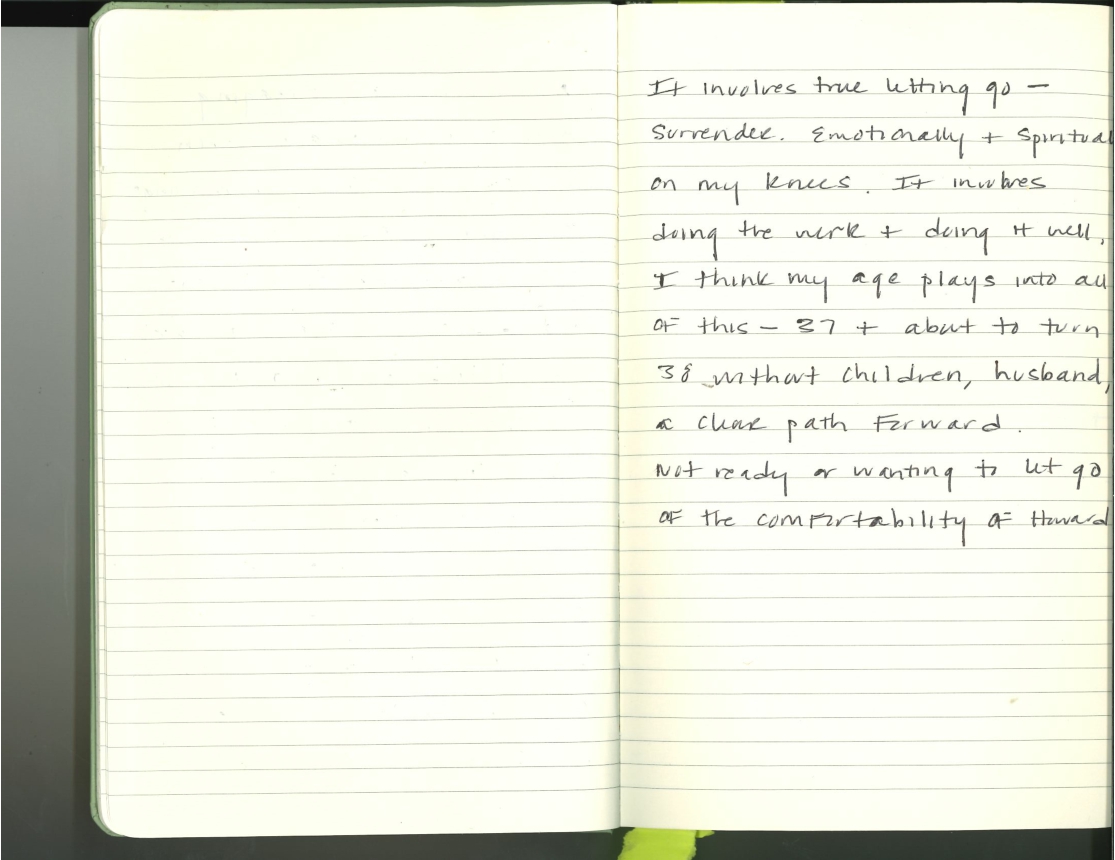 It involves true letting go –
Surrender. Emotionally + Spiritual
on my knees. It involves
doing the work + doing it well.
I think my age plays into all
of this – 37 + about to turn
38 without children, husband,
a clear path forward.
Not ready or wanting to let go
of the comfortability of Howard